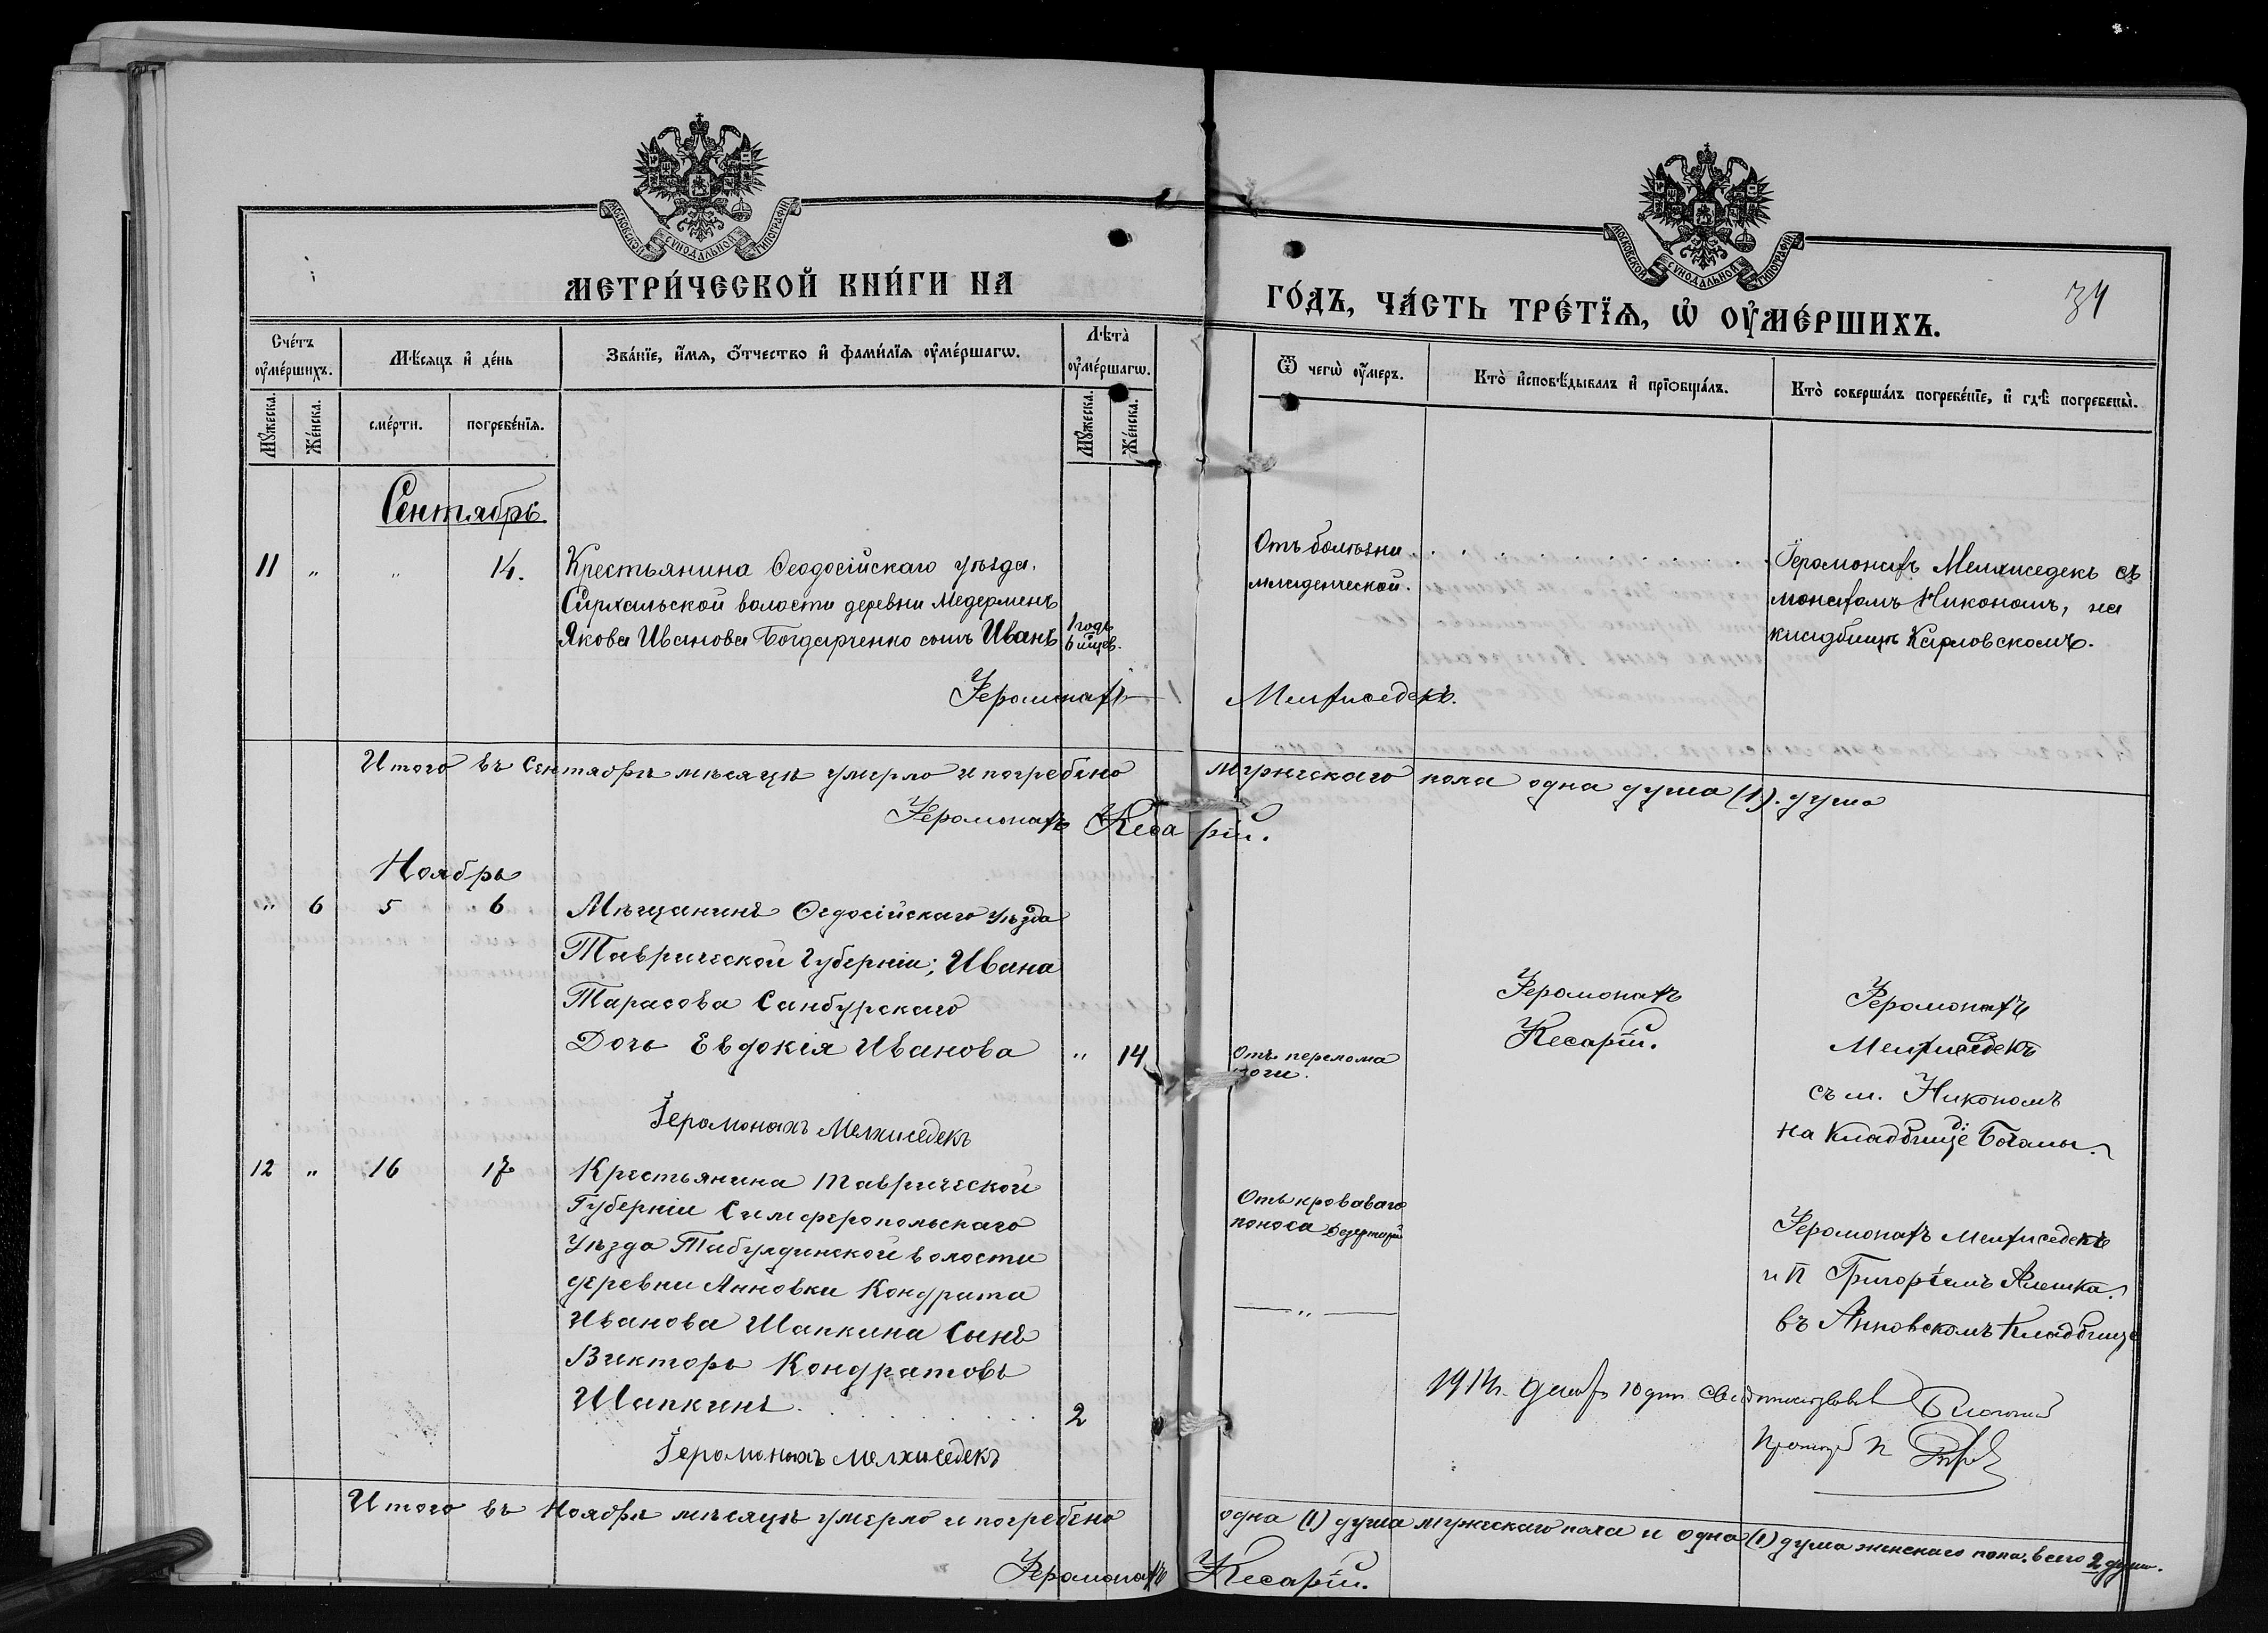 МОСКОВСКОЙ СУНОДАЛЬНОЙ ТИПОГРАФІИ
МОСКОВСКОЙ СУНОДАЛЬНОЙ ТИПОГРАФІИ
МЕТРИ́ЧЕСКОЙ КНИ́ГИ НА
ГО́ДЪ, ЧА́СТЬ ТРЕ́ТЇѦ, Ѡ҆ ОУ҆МЕ́РШИХЪ.
34
Сче́тъ оу҆ме́ршихъ.
Мѣ́сѧцъ и҆ де́нь
Зва́нїе, и҆́мѧ, ѻ҆́тчество и҆ фами́лїѧ оу҆ме́ршагѡ.
Лѣ́та оу҆ме́ршагѡ.
Ѿ чегѡ̀ оу҆́меръ.
Кто̀ и҆сповѣ́дывалъ и҆ прїѻбща́лъ.
Кто̀ соверша́лъ погребе́нїе, и҆ гдѣ̀ погребены̀.
Мꙋ́жеска.
Же́нска.
сме́рти.
погребе́нїѧ.
Мꙋ́жеска.
Же́нска.
Сентябрь
11 " " 14. Крестьянина Ѳеодосійскаго уѣзда,
Сархальской волости деревни Медерменъ
Якова Иванова Богдарченко сынъ Иванъ
1 годъ
6 мцев.
Отъ болѣзни
младенческой.
Іеромонахъ Мелхиседекъ съ
монахомъ Никономъ, на
кладбищѣ Карловскомъ.
Іеромонахъ Мелхиседекъ.
Итого въ Сентябрѣ мѣсяцѣ умерло и погребено мужескаго пола одна душа (1). душа
Іеромонахъ Кесарій.
Ноябрь
" 6 5 6 Мѣщанинъ Ѳедосійскаго уѣзда
Таврической Губерніи; Ивана
Тарасова Санбурскаго
Дочь Евдокія Иванова " 14
Отъ перелома
ноги.
Іеромонахъ
Кесарій.
Іеромонахъ
Мелхиседекъ
съ м. Никономъ
на Кладбище
Іеромонахъ Мелхиседекъ
12 " 16 17 Крестьянина Таврической
Губерніи Симферопольскаго
Уѣзда Табулдинской волости
деревни Анновки Кондрата
Иванова Шапкина Сынъ
Викторъ Кондратовъ
Шапкинъ. 2
Отъ кроваваго
поноса
— " —
Іеромонахъ Мелхиседекъ
и п Григоріемъ
въ Анновскомъ Кладбище
Іеромонахъ Мелхиседекъ
Итого въ Ноябрѣ мѣсяцѣ умерло и погребено одна (1) душа мужескаго пола и одна (1) душа женскаго пола, всего 2 души.
Іеромонахъ Кесарій.